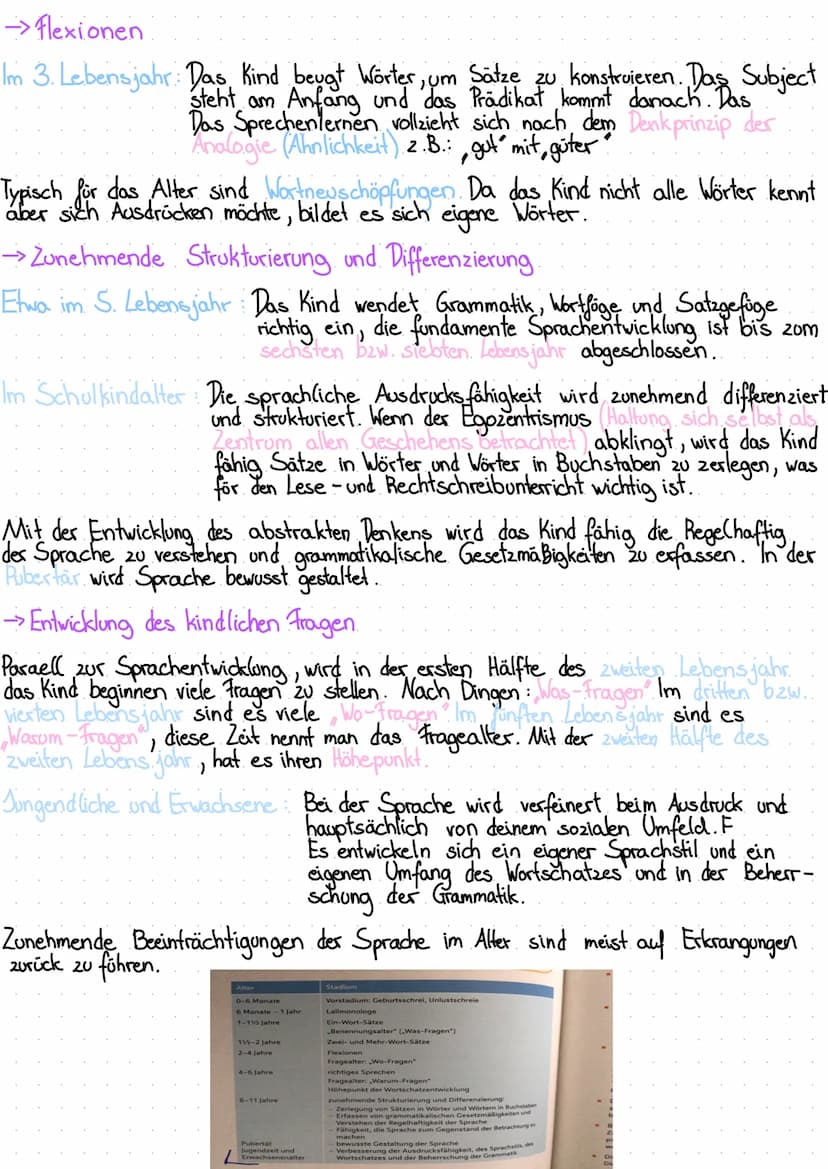 → Flexionen
Im 3. Lebensjahr: Das Kind beugt Wörter, um Sätze zu konstruieren. Das Subject
steht am Anfang und das Prädikat kommt danach. Das
Das Sprechenlernen vollzieht sich nach dem Denkprinzip der
Analogie (Ähnlichkeit) z.B.: „gut" mit „güter"
Typisch für das Alter sind Wortneuschöpfungen. Da das Kind nicht alle Wörter kennt
aber sich Ausdrücken möchte, bildet es sich eigene Wörter.
→ Zunehmende Strukturierung und Differenzierung
Etwa im 5. Lebensjahr: Das Kind wendet Grammatik, Wortfüge und Satzgefüge
richtig ein, die fundamente Sprachentwicklung ist bis zum
sechsten bzw. siebten Lebensjahr abgeschlossen.
Im Schulkindalter: Die sprachliche Ausdrucksfähigkeit wird zunehmend differenziert
und strukturiert. Wenn der Egozentrismus (Haltung sich selbst als
Zentrum allen Geschehens betrachtet) abklingt, wird das Kind
fähig Sätze in Wörter und Wörter in Buchstaben zu zerlegen, was
für den Lese- und Rechtschreibunterricht wichtig ist.
Mit der Entwicklung des abstrakten Denkens wird das Kind fähig die Regelhaftig
der Sprache zu verstehen und grammatikalische Gesetzmäßigkeiten zu erfassen. In der
Pubertär wird Sprache bewusst gestaltet.
→ Entwicklung des kindlichen Fragen
Paraell zur Sprachentwicklung, wird in der ersten Hälfte des zweiten Lebensjahr
das Kind beginnen viele Fragen zu stellen. Nach Dingen: „Was-Fragen" Im dritten bzw.
vierten Lebensjahr sind es viele „Wo-Fragen" Im fünften Lebensjahr sind es
„Warum-Fragen", diese Zeit nennt man das Fragealter. Mit der zweiten Hälfte des
zweiten Lebensjahr, hat es ihren Höhepunkt.
Jungendliche und Erwachsene: Bei der Sprache wird verfeinert beim Ausdruck und
hauptsächlich von deinem sozialen Umfeld. F
Es entwickeln sich ein eigener Sprachstil und ein
eigenen Umfang des Wortschatzes und in der Beherr-
schung der Grammatik.
Zunehmende Beeinträchtigungen der Sprache im Alter sind meist auf Erkrangungen
zurück zu führen.
Alter Stadium
0–6 Monate Vorstadium: Geburtsschrei, Unlustschreie
6 Monate – 1 Jahr Lallmonologe
1–1½ Jahre Ein-Wort-Sätze
„Benennungsalter" („Was-Fragen")
1½–2 Jahre Zwei- und Mehr-Wort-Sätze
2–4 Jahre Flexionen
Fragealter: „Wo-Fragen"
4–6 Jahre richtiges Sprechen
Fragealter: „Warum-Fragen"
Höhepunkt der Wortschatzentwicklung
6–11 Jahre zunehmende Strukturierung und Differenzierung:
– Zerlegung von Sätzen in Wörter und Wörtern in Buchstaben
– Erfassen von grammatikalischen Gesetzmäßigkeiten und
Verstehen der Regelhaftigkeit der Sprache
– Fähigkeit, die Sprache zum Gegenstand der Betrachtung zu
machen
Pubertät – bewusste Gestaltung der Sprache
Jugendzeit und – Verbesserung der Ausdrucksfähigkeit, des Sprachstils, des
Erwachsenenalter Wortschatzes und der Beherrschung der Grammatik